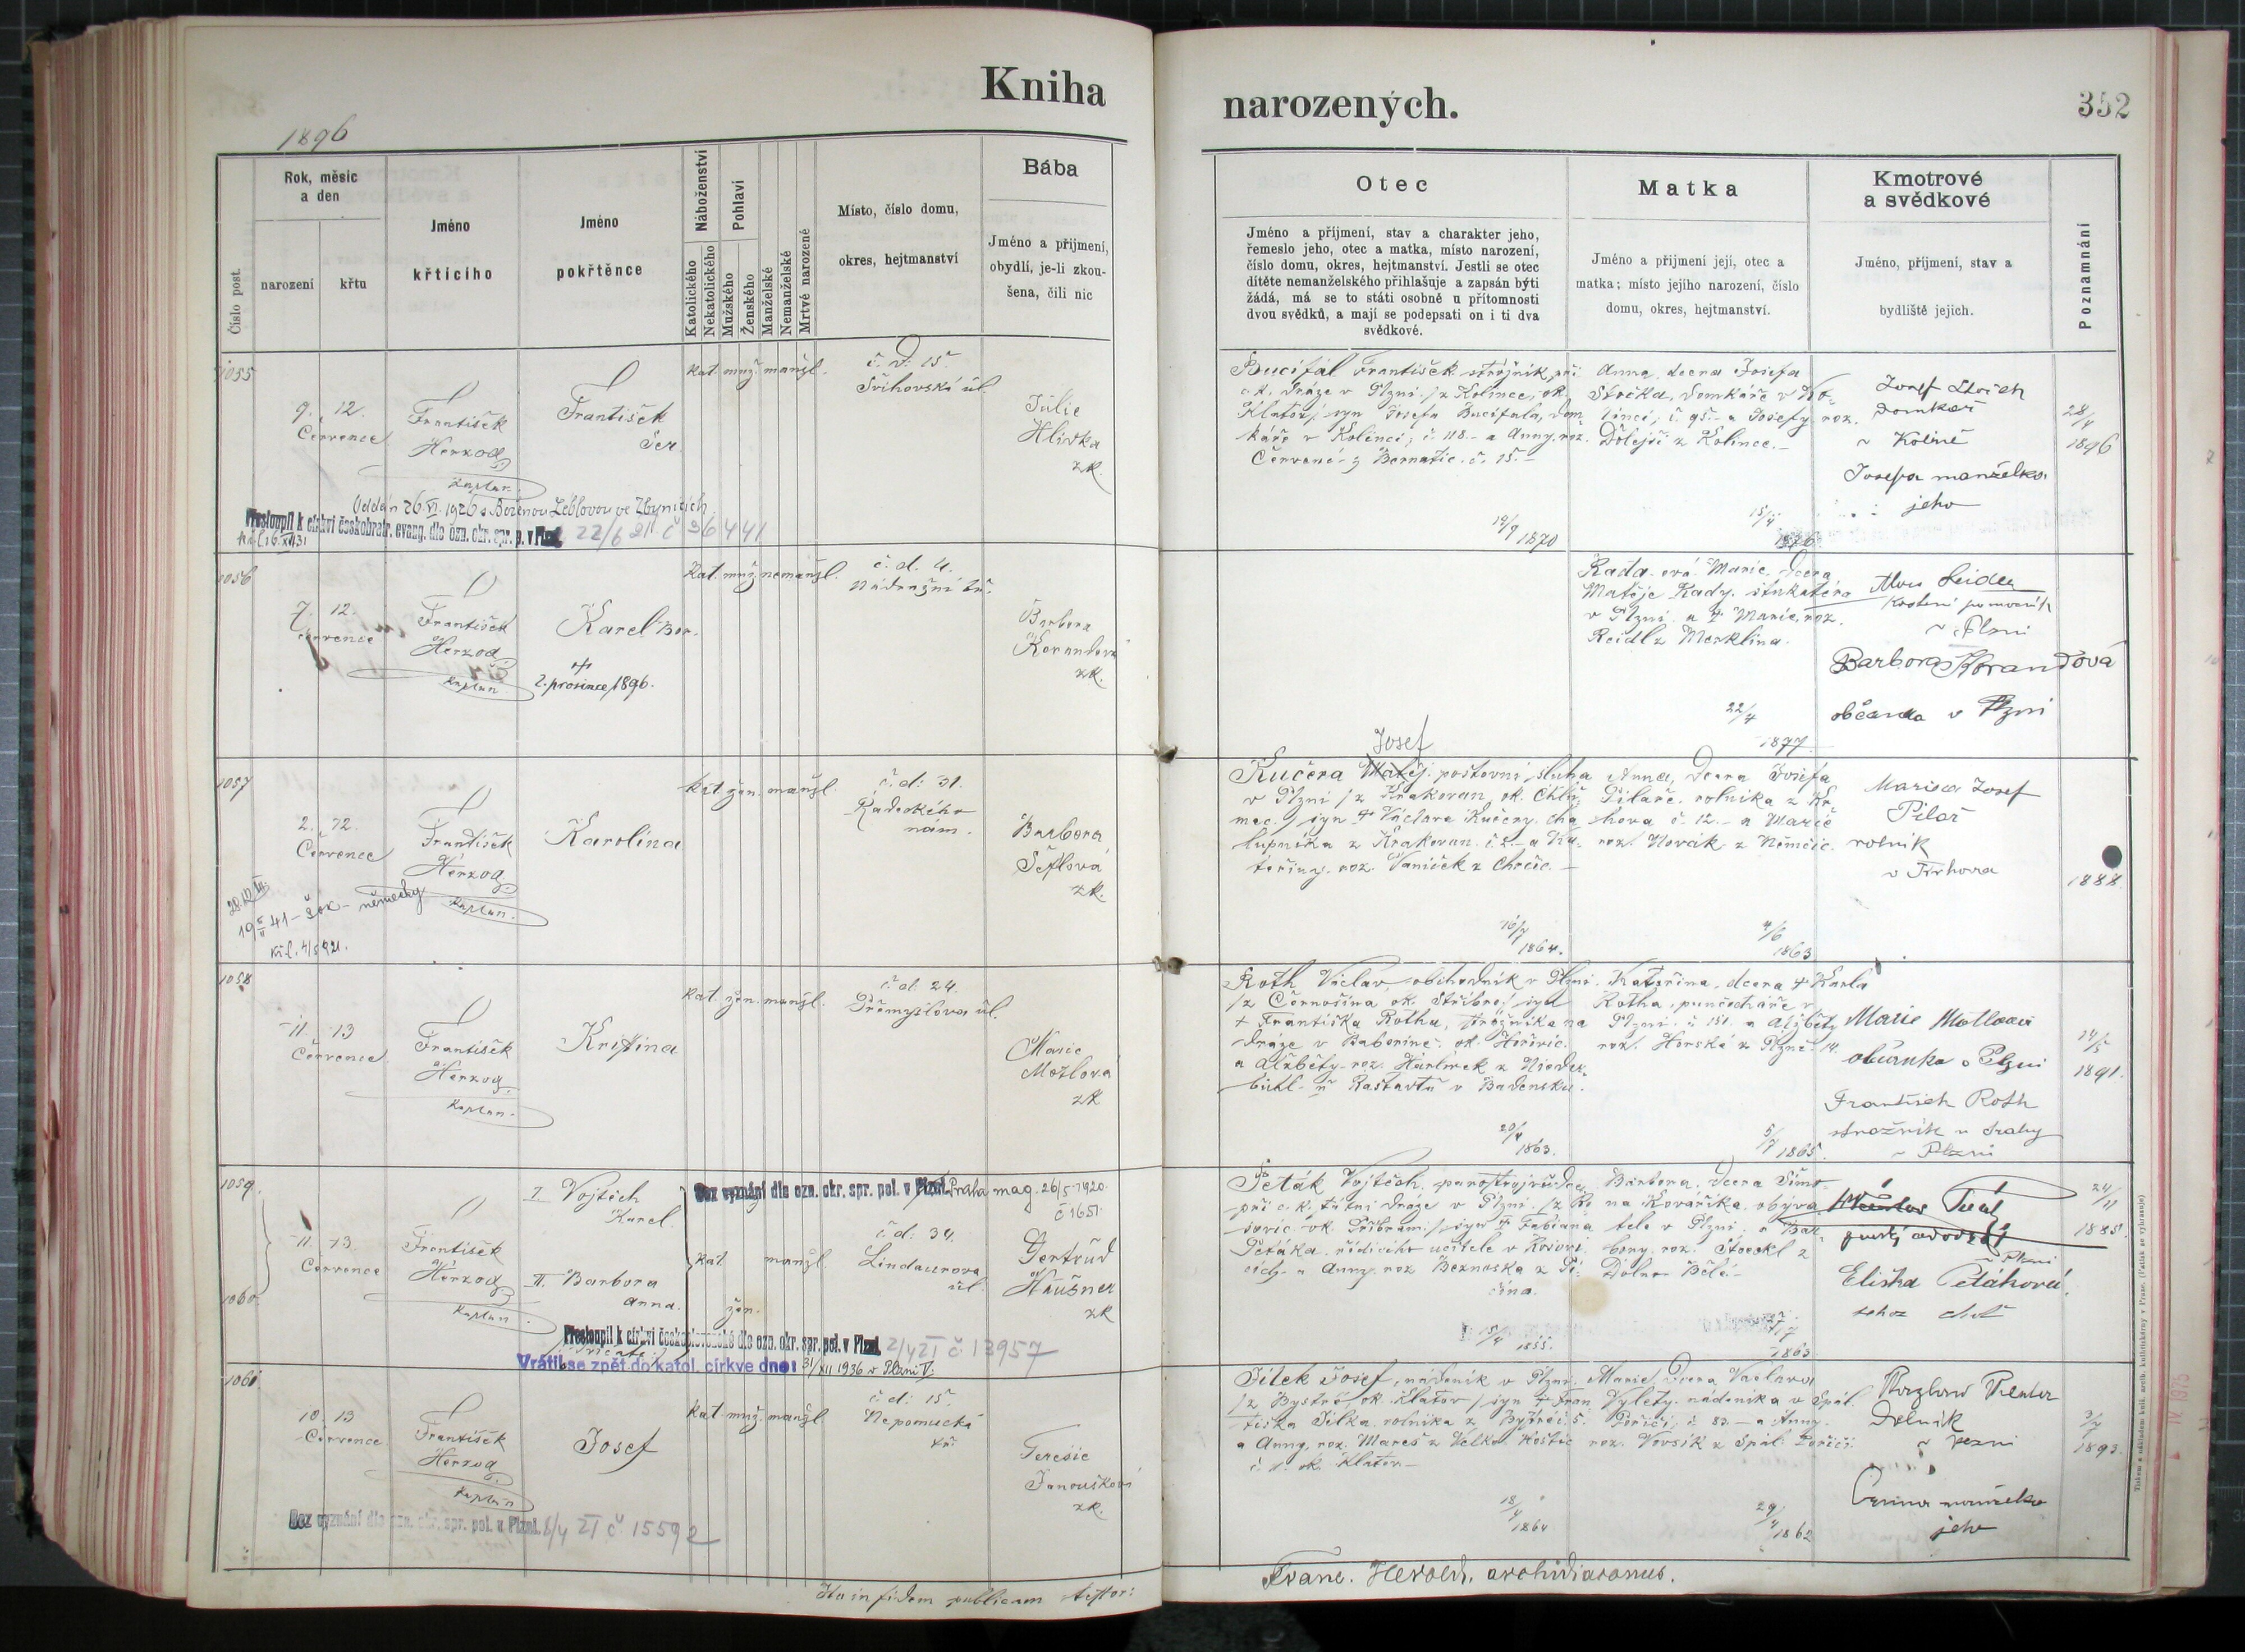 Kniha
narozených.
352
1896
Číslo post.
Rok, měsíc
a den
narození
křtu
Jméno
křtícího
Jméno
pokřtěnce
Náboženství
Katolického
Nekatolického
Pohlaví
Mužského
Ženského
Manželské
Nemanželské
Mrtvě narozené
Místo, číslo domu,
okres, hejtmanství
Bába
Jméno a příjmení,
obydlí, je-li zkou-
šena, čili nic
Otec
Jméno a příjmení, stav a charakter jeho,
řemeslo jeho, otec a matka, místo narození,
číslo domu, okres, hejtmanství. Jestli se otec
dítěte nemanželského přihlašuje a zapsán býti
žádá, má se to státi osobně u přítomnosti
dvou svědků, a mají se podepsati on i ti dva
svědkové.
Matka
Jméno a příjmení její, otec a
matka; místo jejího narození, číslo
domu, okres, hejtmanství.
Kmotrové
a svědkové
Jméno, příjmení, stav a
bydliště jejich.
Poznamnání
1055
9. 12.
Července
František
Herzog
kaplan
František
Ser.
kat. muž. manžl.
č. d. 15
Švihovská ul.
Julie
Hliska
zk.
Bucifal František strojník při
c. k. dráze v Plzni /z Kolince, ok.
Klatov/ syn Josefa Bucifala, dom
káře v Kolinci, č. 118.- a Anny, roz.
Červené z Bernatic. č. 15.-
19/9 1870
Anna, dcera Josefa
Stočka, domkáře v Ko-
linci, č. 95.- a Josefy roz.
Dolejší z Kolince.-
15/4
Josef
domkář
v Kolinci
Josefa manželka
jeho
28/4
1896
Oddán 26.VI.1926 s Boženou Léblovou ve Zbynicích
Přestoupil k církvi českobratr. evang. dle ozn. okr. spr. p. v Plzni 22/6 21 č 36441
1056
7. 12.
července
František
Herzog
kaplan
Karel Bor.
2. prosince 1896.
kat. muž. nemanžl.
č. d. 4.
Nádražní tř.
Barbora
Korandova
zk.
Rada- ová Marie, dcera
Matěje Rady, štukatéra
v Plzni a † Marie, roz.
Reidl z Merklína.
22/4
1877
v Plzni
Barbora Korandová
občanka v Plzni
1057
2. 12.
Července
František
Herzog
kaplan.
Karolina
kat. žen. manžl
č. d: 31.
Radeckého
nám.
Barbora
Šeflová
zk.
Josef
Kučera Matěj poštovní sluha
v Plzni /z Krakovan ok. Chlu-
mec / syn † Václava Kučery, cha
lupníka z Krakovan č. 2.- a Ka-
teřiny. roz. Vaníček z Chrčic.-
16/7
1864.
Anna, dcera Josefa
Pilaře, rolníka z Kr-
chova č. 12.- a Marie
roz. Novák z Němčic.
4/6
1863
Josef
Pilař
rolník
1888.
19 41 - německy
1058
11. 13
Července.
František
Herzog
kaplan.
Kristina
kat. žen. manžl.
č. d. 24.
Přemyslova ul.
Marie
Motlova
zk
Roth Václav obchodník v Plzni
/z Černošína ok. Stříbro/ syn
† Františka Rotha, strážníka na
dráze v Bavorině. ok. Hořovic.
a Alžběty roz. Härlinek z Nieder-
bühl u Rastattu v Badensku.
20/4
1863.
Kateřina, dcera † Karla
Rotha, punčocháře v
Plzni č. 151. a Alžběty
roz. Horská z Plzně. 14.
5/7 1865.
Marie Motlová
občanka v Plzni
František Roth
strážník u dráhy
v Plzni
14/5
1891.
1059.
1060.
11. 13
Července
František
Herzog
kaplan
I Vojtěch
Karel.
II. Barbora
Anna.
Bez vyznání dle ozn. okr. spr. pol. v Plzni. Praha mag. 26/5 1920.
č 1651.
kat manžl.
žen.
č d: 34.
Lindauerova
ul.
Gertrud
Häusner
zk
Peták Vojtěch, parostrojvůdce
při c. k. státní dráze v Plzni /z Ro
sovic ok. Příbram / syn † Fabiana
Petáka, řídícího učitele v Rosovi-
cích a Anny. roz. Beznoska z Pi-
čína.
15/4
1855.
Barbora, dcera Šimo-
na Kováříka, obyva
tele v Plzni, a Bar-
bory. roz. Stoeckl z
Dolno Bělé.-
1863
v Plzni
Eliška Petáková,
24/11
1885.
Přestoupil k církvi československé dle ozn. okr. spr. pol. v Plzni. 2/4 21 č 13957
Vrátil se zpět do katol. církve dne: 31/XII 1936 v Plzni V.
1061.
10. 13
Července
František
Herzog
kaplan
Josef
kat. muž. manžl.
č. d: 15.
Nepomucká
tř.
Terezie
Janoušková
zk.
Jílek Josef, nádeník v Plzni
/z Bystré, ok. Klatov / syn † Fran
tiska Jílka, rolníka z Bystré č. 5.
a Anny, roz. Mareš z Velko Hoštic
č. 1. ok. Klatov-
18/4
1864
Marie, dcera Václava
Vylety, nádeníka v Spál.
Poříčí č. 83.- a Anny
roz. Vovsík z Spál. Poříčí.
29/4 1862
Dělník
v Plzni
manželka
jeho
3/7
1893.
Bez vyznání dle ozn. okr. spr. pol. v Plzni. 8/4 21 č. 15592
Ita in fidem publicam testor:
Franc. Herold, archidiaconus.